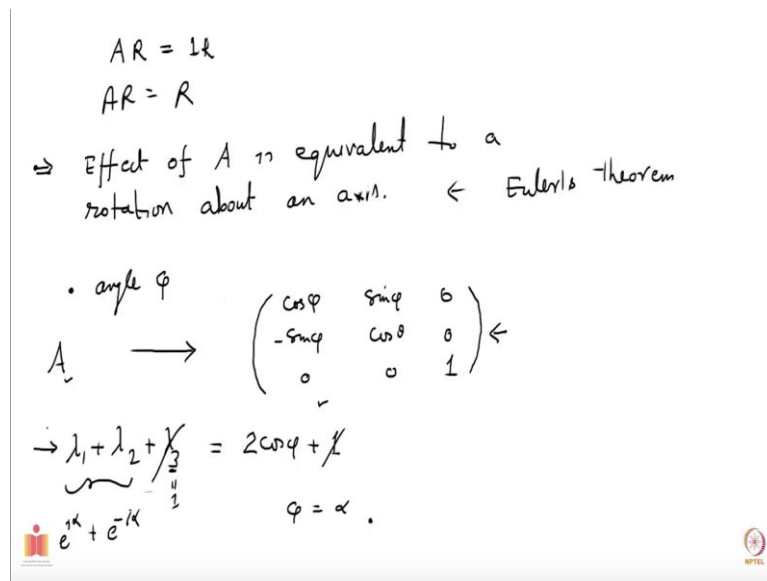 AR = 1R
AR = R
⇒ Effect of A is equivalent to a
rotation about an axis. ← Euler's Theorem
• angle φ
A → ( cosφ sinφ 0
-sinφ cosθ 0
0 0 1 ) ←
→ λ₁ + λ₂ + λ₃ = 2cosφ + 1
"
1
e^{iα} + e^{-iα} φ = α .
NPTEL